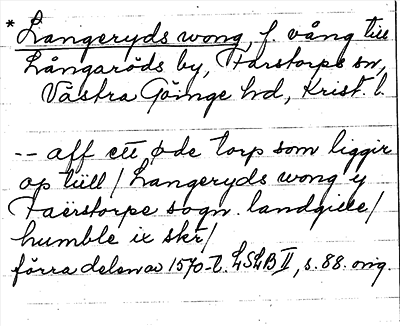 * Langeryds wong, f. vång till
Långaröds by, Farstorps sn,
Västra Göinge hd, Krist. l.
-- aff ett øde torp som liggir
op tiill / Langeryds wong y
Faerstorpe sogn. landgiele /
humble ix skr /
förra delen av 1570-t. LSLB II, s. 88. orig.